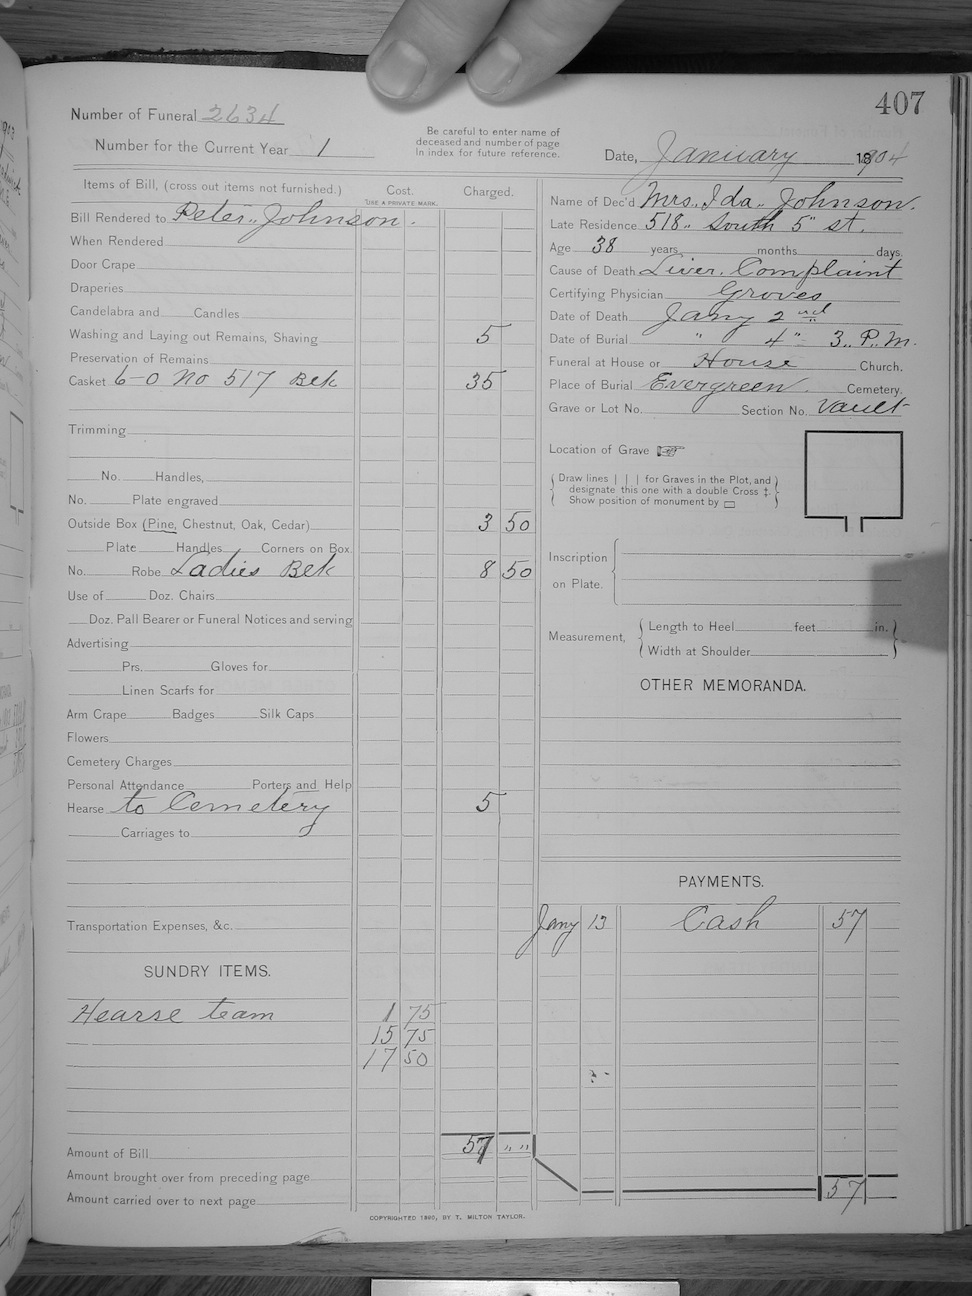 407
Number of Funeral 2634
Number for the Current Year 1
Be careful to enter name of
deceased and number of page
in index for future reference.
Date, January 1904
Items of Bill, (cross out items not furnished.) Cost. Charged.
USE A PRIVATE MARK.
Bill Rendered to Peter Johnson.
When Rendered
Door Crape
Draperies
Candelabra and Candles
Washing and Laying out Remains, Shaving 5
Preservation of Remains
Casket 6-0 No 517 Blk 35
Trimming
No. Handles,
No. Plate engraved
Outside Box (Pine, Chestnut, Oak, Cedar) 3 50
Plate Handles Corners on Box.
No. Robe Ladies Blk 8 50
Use of Doz. Chairs
Doz. Pall Bearer or Funeral Notices and serving
Advertising
Prs. Gloves for
Linen Scarfs for
Arm Crape Badges Silk Caps
Flowers
Cemetery Charges
Personal Attendance Porters and Help
Hearse to Cemetery 5
Carriages to
Transportation Expenses, &c.
SUNDRY ITEMS.
Hearse team 1 75
15 75
17 50
Amount of Bill 57 " "
Amount brought over from preceding page
Amount carried over to next page
Name of Dec'd Mrs. Ida Johnson.
Late Residence 518 South 5" st.
Age 38 years months days.
Cause of Death Liver. Complaint
Certifying Physician Groves
Date of Death Jany 2nd
Date of Burial " 4" 3. P.M.
Funeral at House or House Church.
Place of Burial Evergreen Cemetery.
Grave or Lot No. Section No. Vault
Location of Grave
Draw lines | | | for Graves in the Plot, and
designate this one with a double Cross ‡.
Show position of monument by
Inscription
on Plate.
Measurement,
Length to Heel feet in.
Width at Shoulder
OTHER MEMORANDA.
PAYMENTS.
Jany 13 Cash 57
57
COPYRIGHTED 1890, BY T. MILTON TAYLOR.